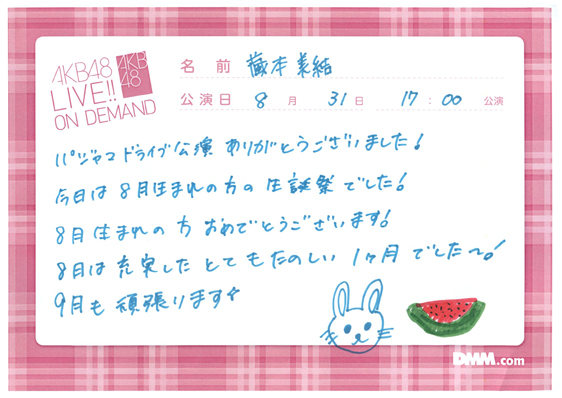 AKB48
LIVE!!
ON DEMAND
AKB
48
名 前 蔵本美結
公演日 8 月 31 日 17 : 00 公演
パジャマドライブ公演 ありがとうございました!
今日は 8月生まれの方の 生誕祭 でした!
8月生まれの方 おめでとうございます!
8月は 充実した とても たのしい 1ヶ月 でした〜!
9月も 頑張ります
DMM.com